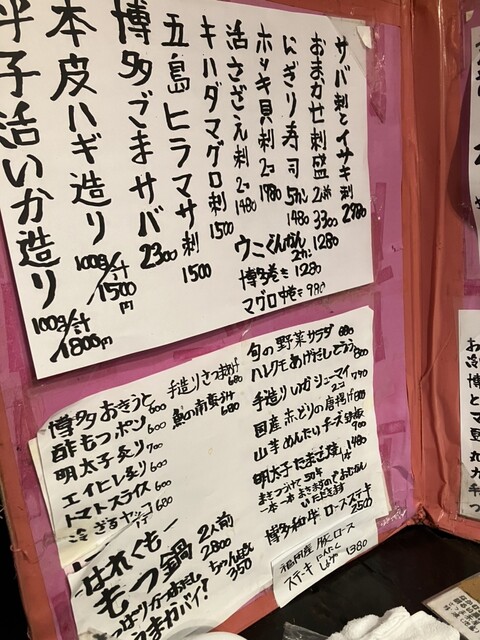 サバ刺とイサキ刺 2980
おまかせ刺盛 2人前 3300
にぎり寿司 5カン 1480
ホッキ貝刺 2コ 1980
活さざえ刺 2コ 1480
キハダマグロ刺 1500
五島ヒラマサ刺 1500
博多ごまサバ 2300
本皮ハギ造り 100g/計 1500円
呼子活いか造り 100g/計 1800円
ウニぐんかん 2カン 1280
博多巻き 1280
マグロ中巻き 980
旬の野菜サラダ 680
ハレクモあげだしどうふ 800
手造りいかシューマイ 2コ 790
国産赤どりの唐揚げ 800
山芋めんたいチーズ鉄板 700
明太子たまご焼 1480
一本一本まきますのでおじかん
いただきます
博多和牛ロースステキ 2500
福岡産豚ロース
ステーキ にんにく しょうゆ 1380
手造りさつまあげ 680
魚の南蛮漬け 680
博多おきうと 600
酢もつポン 600
明太子炙り 700
エイヒレ炙り 700
トマトスライス 600
はれくも
もつ鍋 2人前 2800
ちゃんぽん 350
うまかバイ!